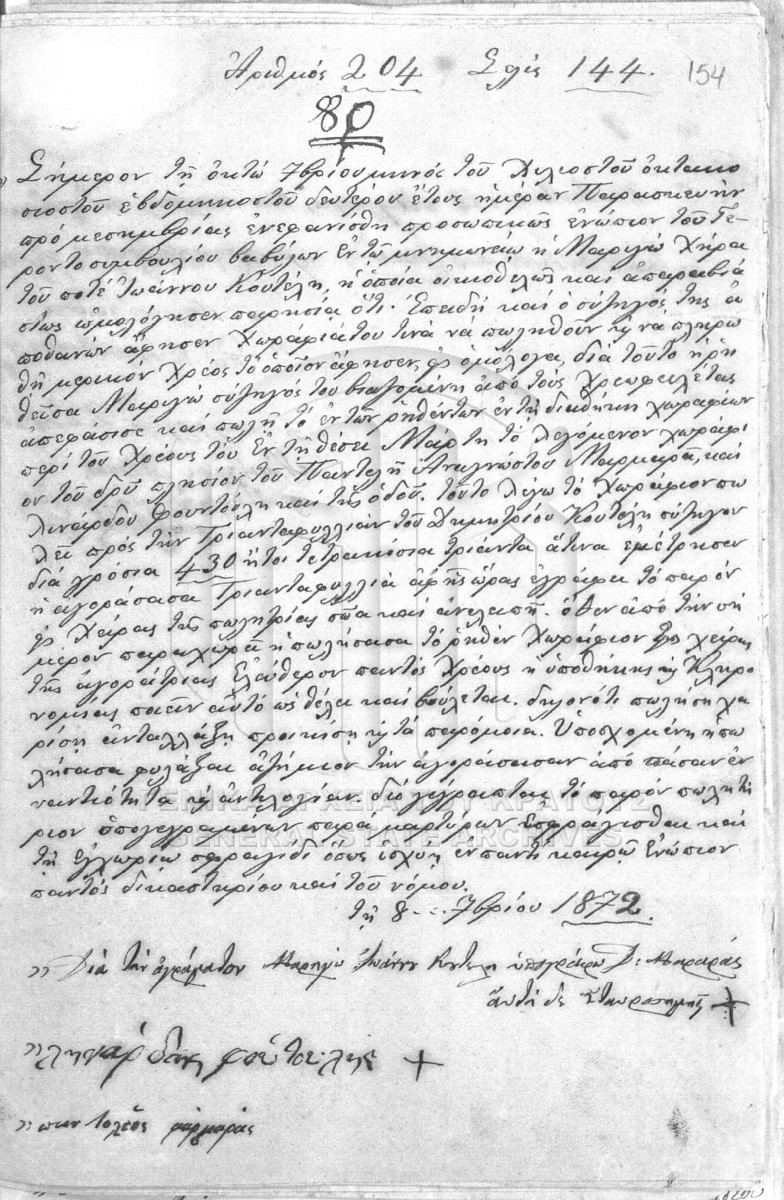 Ἀριθμός 204 Σελίς 144. 154
80
» Σήμερον τῇ ὀκτώ 7βρίου μηνός τοῦ Χιλιοστοῦ ὀκτακο
σιοστοῦ ἑβδομηκοστοῦ δευτέρου ἔτους ἡμέραν Παρασκευήν
πρό μεσημβρίας ἐνεφανίσθη προσωπικῶς ἐνώπιον τοῦ Γε-
ροντοσυμβουλίου βαβύλων ἐν τῷ μνημονείῳ ἡ Μαριγώ Χήρα
τοῦ ποτέ Ἰωάννου Κουτέλη, ἡ ὁποία οἰκοθελῶς καί ἀπαραβιά
στως ὡμολόγησεν παρησίᾳ ὅτι. Ἐπειδή καί ὁ σύζηγός της ἀ
ποθανών ἄφησεν Χωράφιά του τινά νά πωληθοῦν κ νά πληρω
θῇ μερικόν Χρέος τό ὁποῖον ἄφησεν, ὁμόλογα, διά τοῦτο ἡ ῥη
θεῖσα Μαριγώ σύζηγός του βιαζομένη ἀπό τούς Χρεωφειλέτας
ἀπεφάσισε καί πωλῇ τό ἐν τῶν ῥηθέντων ἐν τῇ διαθήκῃ χωραφίων
περί τοῦ Χρέους τοῦ ἐν τῇ θέσει Μάρτη τό λεγόμενον χωράφι
ον τοῦ δρῦ πλησίον τοῦ Παντελῆ Ἀναγνώστου Μαρμαρᾶ, καί
Λινάρδου Φουντούλη καί τῆς ὁδοῦ. τοῦτο λέγω τό Χωράφιον πω
λεῖ πρός τήν Τριανταφυλλιάν τοῦ Δημητρίου Κουτέλη σύζηγον
διά γρόσια 430 ἤτοι τετρακόσια τριάντα ἅτινα ἐμέτρησεν
ἡ ἀγοράσασα Τριανταφυλλιά ἀφ' ἧς ὥρας ἐγράφη τό παρόν
Χεῖρας τῆς πωλητρίας σῶα καί ἀνελλιπῆ. ὅθεν ἀπό τήν σή
μερον παραχωρεῖ ἡ πωλήσασα τό ῥηθέν Χωράφιον χεῖρας
τῆς ἀγοράτριας ἐλεύθερον παντός Χρέους ἤ ὑποθήκης κ Κληρο
νομίας ποιεῖν αὐτό ὡς θέλει καί βούλεται. δηλονότι πωλήσῃ χα
ρίσῃ ἀνταλλάξῃ προικίσῃ κ τά παρόμοια. Ὑποσχομένη ἡ πω
λήσασα φυλάξαι ἀζήμιον τήν ἀγοράσασαν ἀπό πᾶσαν ἐν
ναντιότητα κ ἀντιλογίαν. διό γέγραπται τό παρόν πωλητή
ριον ὑπογεγραμένων παρά μαρτύρων ἐσφραγίσθαι καί
τῇ ἐγχωρίῳ σφραγίδι ὅπως ἰσχύῃ ἐν παντί καιρῷ ἐνώπιον
παντός δικαστηρίου καί τοῦ νόμου.
τῇ 8 7βρίου 1872.
» Διά τήν ἀγράματον Μαρηγώ Ἰωάννη Κουτέλη ὑπογράφω Δ: Μαραράς
αὐτή δε σταυροσημῆ +
» ληναρδης φουτουλης +
» παντολεὸς μαρμαράς
ΓΕΝΙΚΑ ΑΡΧΕΙΑ ΤΟΥ ΚΡΑΤΟΥΣ
GENERAL STATE ARCHIVES